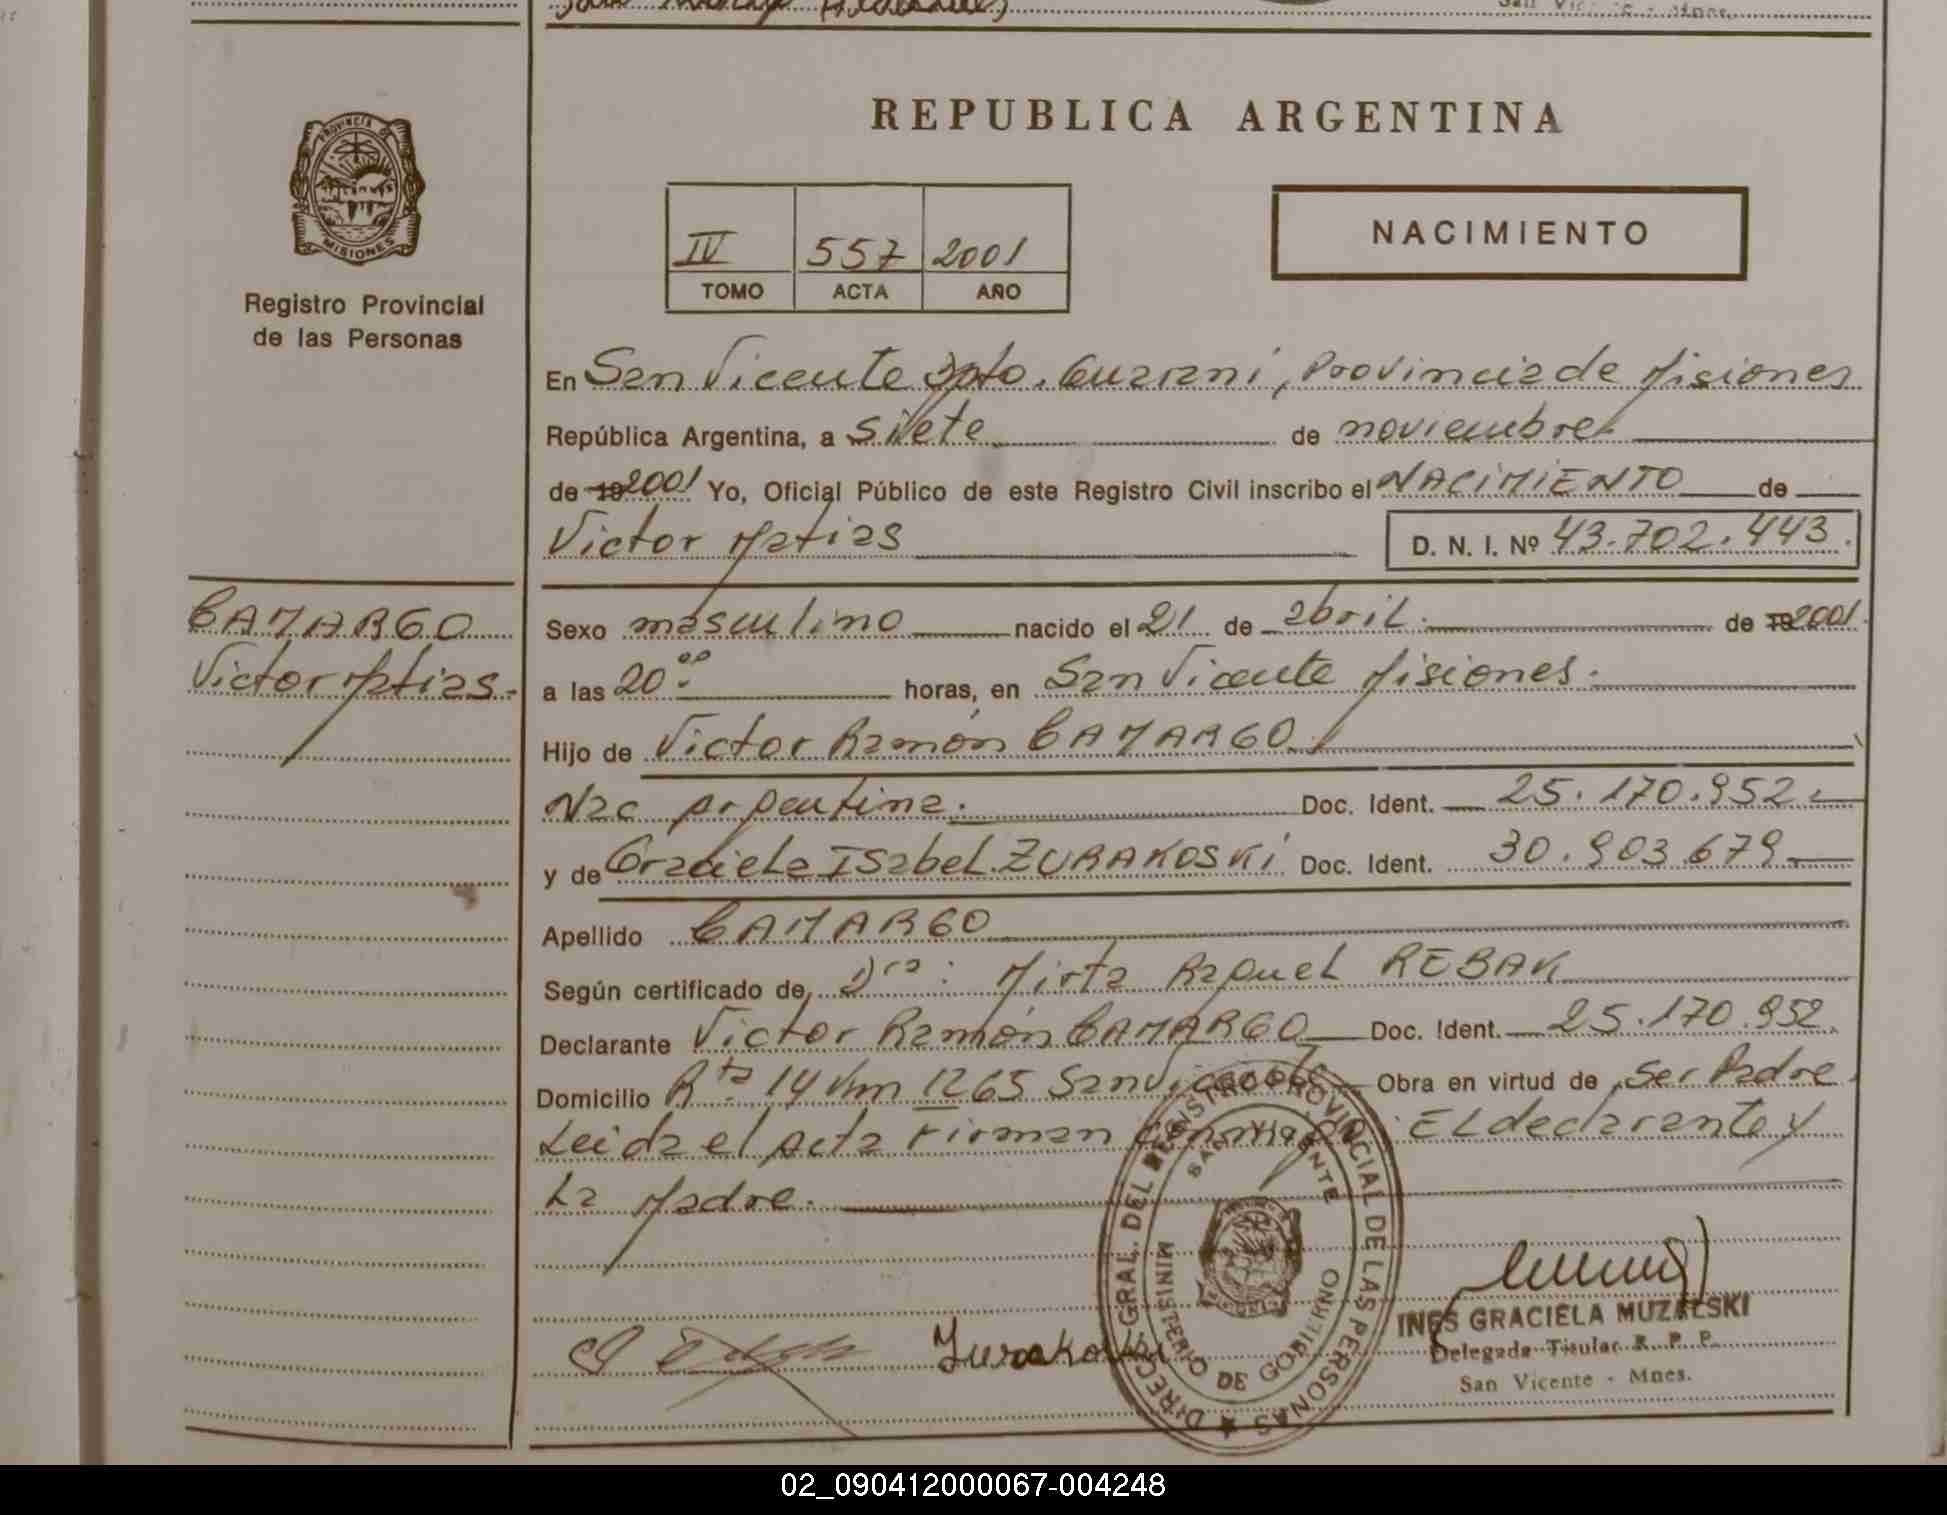 San Vicente - Mnes.
PROVINCIA DE
MISIONES
Registro Provincial
de las Personas
REPUBLICA ARGENTINA
IV 557 2001
TOMO ACTA AÑO
NACIMIENTO
En San Vicente Dpto. Guarani, Provincia de Misiones
República Argentina, a siete de noviembre
de 19 2001 Yo, Oficial Público de este Registro Civil inscribo el NACIMIENTO de
Victor Matias D. N. I. Nº 43.702.443.
CAMARGO
Victor Matias.-
Sexo masculino nacido el 21 de abril. de 19 2001.
a las 20:00 horas, en San Vicente Misiones.
Hijo de Victor Ramón CAMARGO.
Nac Argentina. Doc. Ident. 25.170.952.
y de Graciela Isabel ZURAKOSKi Doc. Ident. 30.903.679
Apellido CAMARGO
Según certificado de Dra: Mirta Raquel REBAK
Declarante Victor Ramón CAMARGO Doc. Ident. 25.170.952.
Domicilio Rta 14 Km 1265 San Vicente Obra en virtud de ser Padre.
Leida el Acta Firman conmigo: El declarante y
La Madre.
DIREC. GRAL. DEL REGISTRO PROVINCIAL DE LAS PERSONAS
SAN VICENTE
MINISTERIO DE GOBIERNO
Zurakoski
INES GRACIELA MUZALSKI
Delegada Titular R. P. P.
San Vicente - Mnes.
02_090412000067-004248